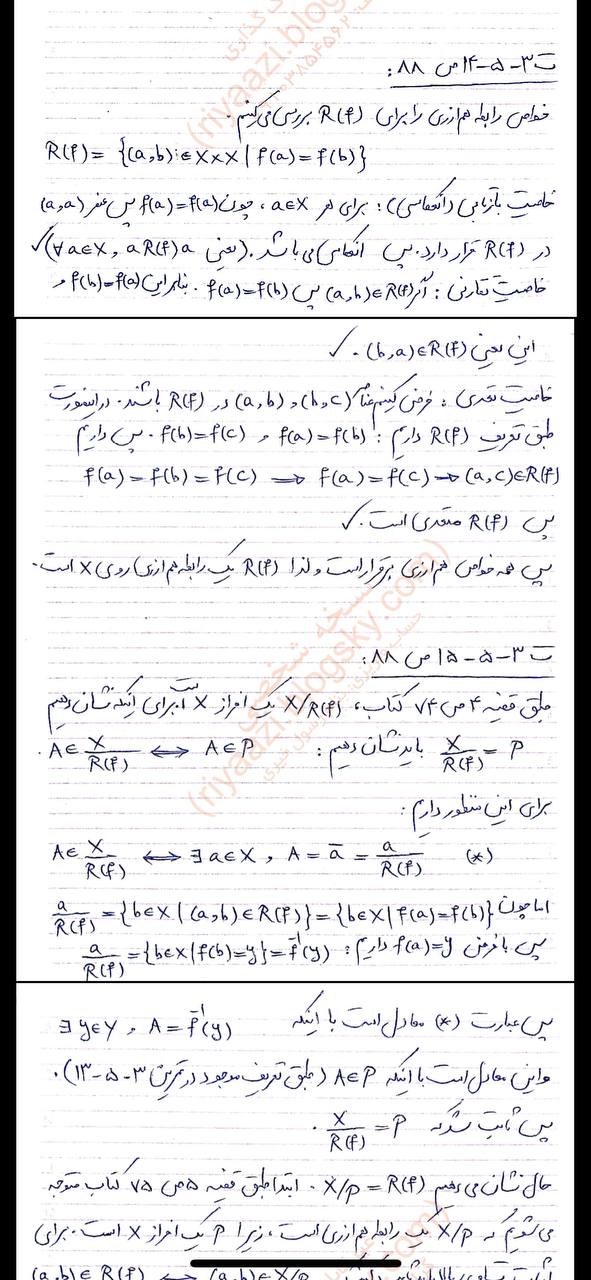 ت ۳-۵-۱۴ ص ۸۸:
خواص رابطه هم ارزی را برای R(f) بررسی می‌کنیم.
R(f) = {(a,b) ∈ X×X | f(a) = f(b)}
خاصیت بازتابی (انعکاسی): برای هر a∈X، چون f(a)=f(a) پس عنصر (a,a)
در R(f) قرار دارد. پس انعکاسی می باشد. (یعنی ∀a∈X, aR(f)a) ✓
خاصیت تقارنی: اگر (a,b)∈R(f) پس f(a)=f(b). بنابراین f(b)=f(a) و
این یعنی (b,a)∈R(f). ✓
خاصیت تعدی: فرض کنیم (a,b) و (b,c) در R(f) باشند. در اینصورت
طبق تعریف R(f) داریم: f(a)=f(b) و f(b)=f(c). پس داریم
f(a)=f(b)=f(c) ⟹ f(a)=f(c) → (a,c)∈R(f)
پس R(f) متعدی است. ✓
پس همه خواص هم ارزی برقرار است و لذا R(f) یک رابطه هم ارزی روی X است.
ت ۳-۵-۱۵ ص ۸۸:
طبق قضیه ۴ ص ۷۴ کتاب، X/R(f) یک افراز X است. برای اینکه نشان دهیم
X/R(f) = P باید نشان دهیم: A∈X/R(f) ⟺ A∈P.
برای این منظور داریم:
(*) A∈X/R(f) ⟺ ∃a∈X, A = ā = a/R(f)
اما چون a/R(f) = {b∈X | (a,b)∈R(f)} = {b∈X | f(a)=f(b)}
پس با فرض f(a)=y داریم: a/R(f) = {b∈X | f(b)=y} = f⁻¹(y)
پس عبارت (*) معادل است با اینکه ∃y∈Y, A = f⁻¹(y)
و این معادل است با اینکه A∈P (طبق تعریف موجود در تمرین ۳-۵-۱۳).
پس ثابت شد که X/R(f) = P.
حال نشان می دهیم X/P = R(f). ابتدا طبق قضیه ۵ ص ۷۵ کتاب متوجه
می شویم که X/P یک رابطه هم ارزی است، زیرا P یک افراز X است. برای
(a,b)∈R(f) ⟺ (a,b)∈X/P
نسخه شخصی
(riyaazi.blogsky.com)